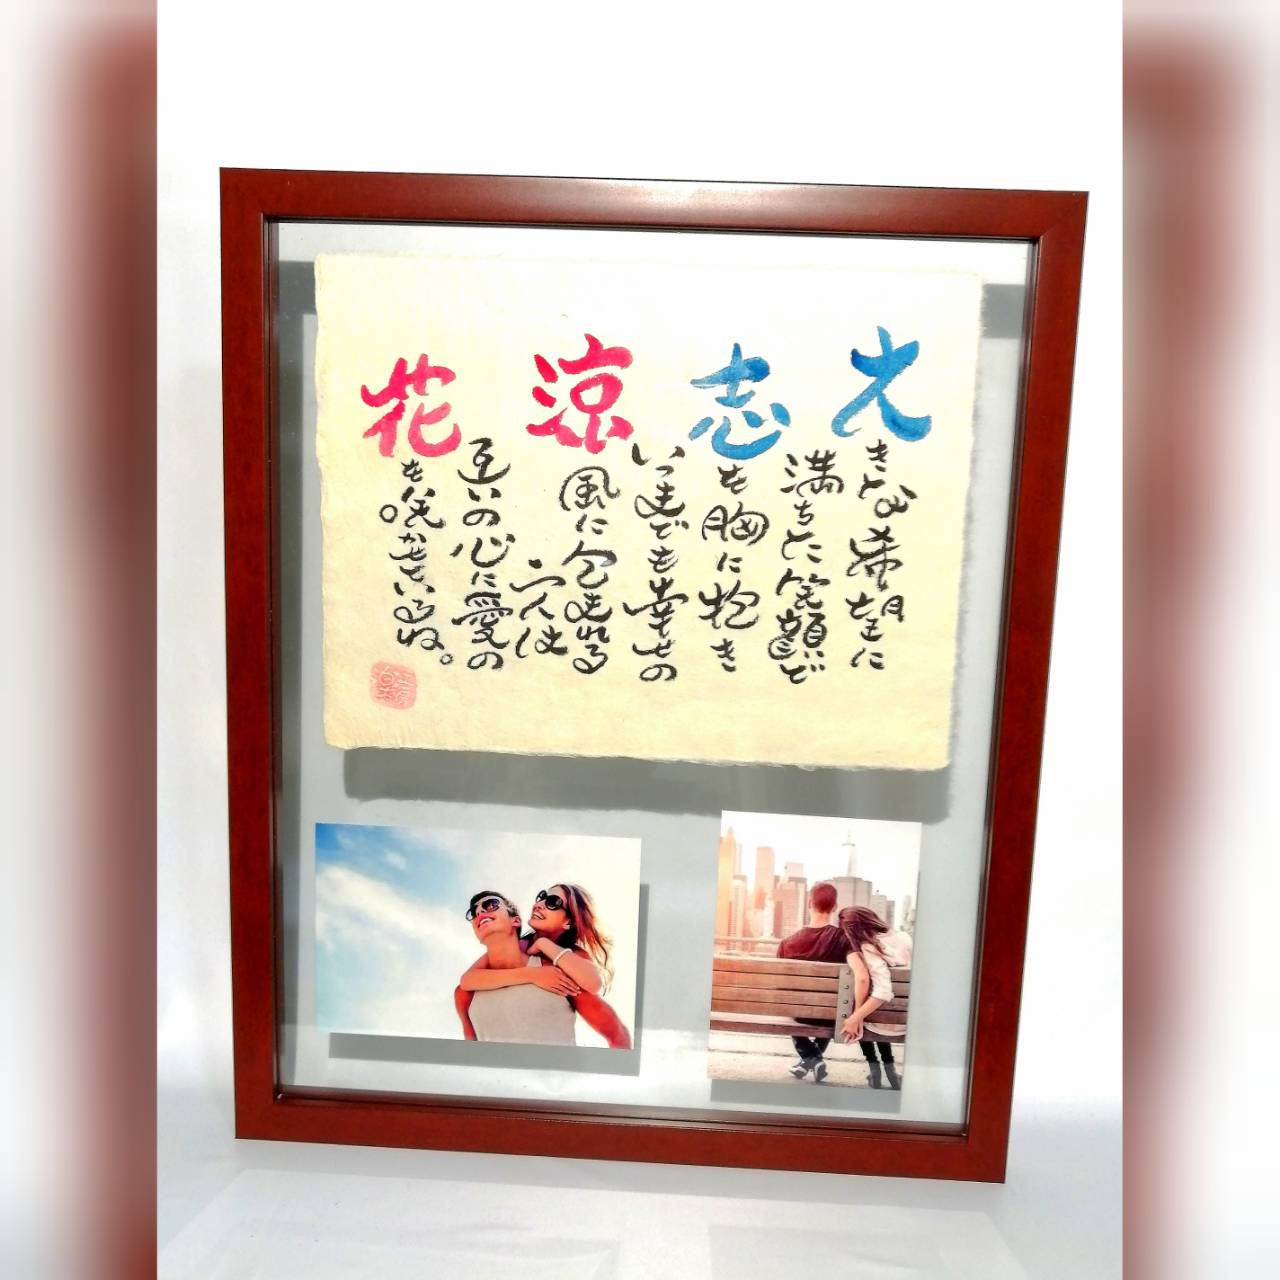 大きな希望に
満ちた笑顔で
志も胸に抱き
いつまでも幸せの
涼風に包まれる
二人は
互いの心に愛の
花も咲かせているね。